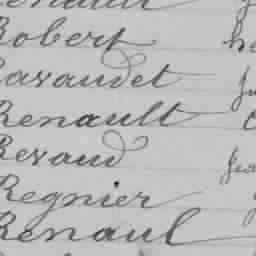 Robert
Ravaudet
Renault
Revaud
Regnier
Renaul